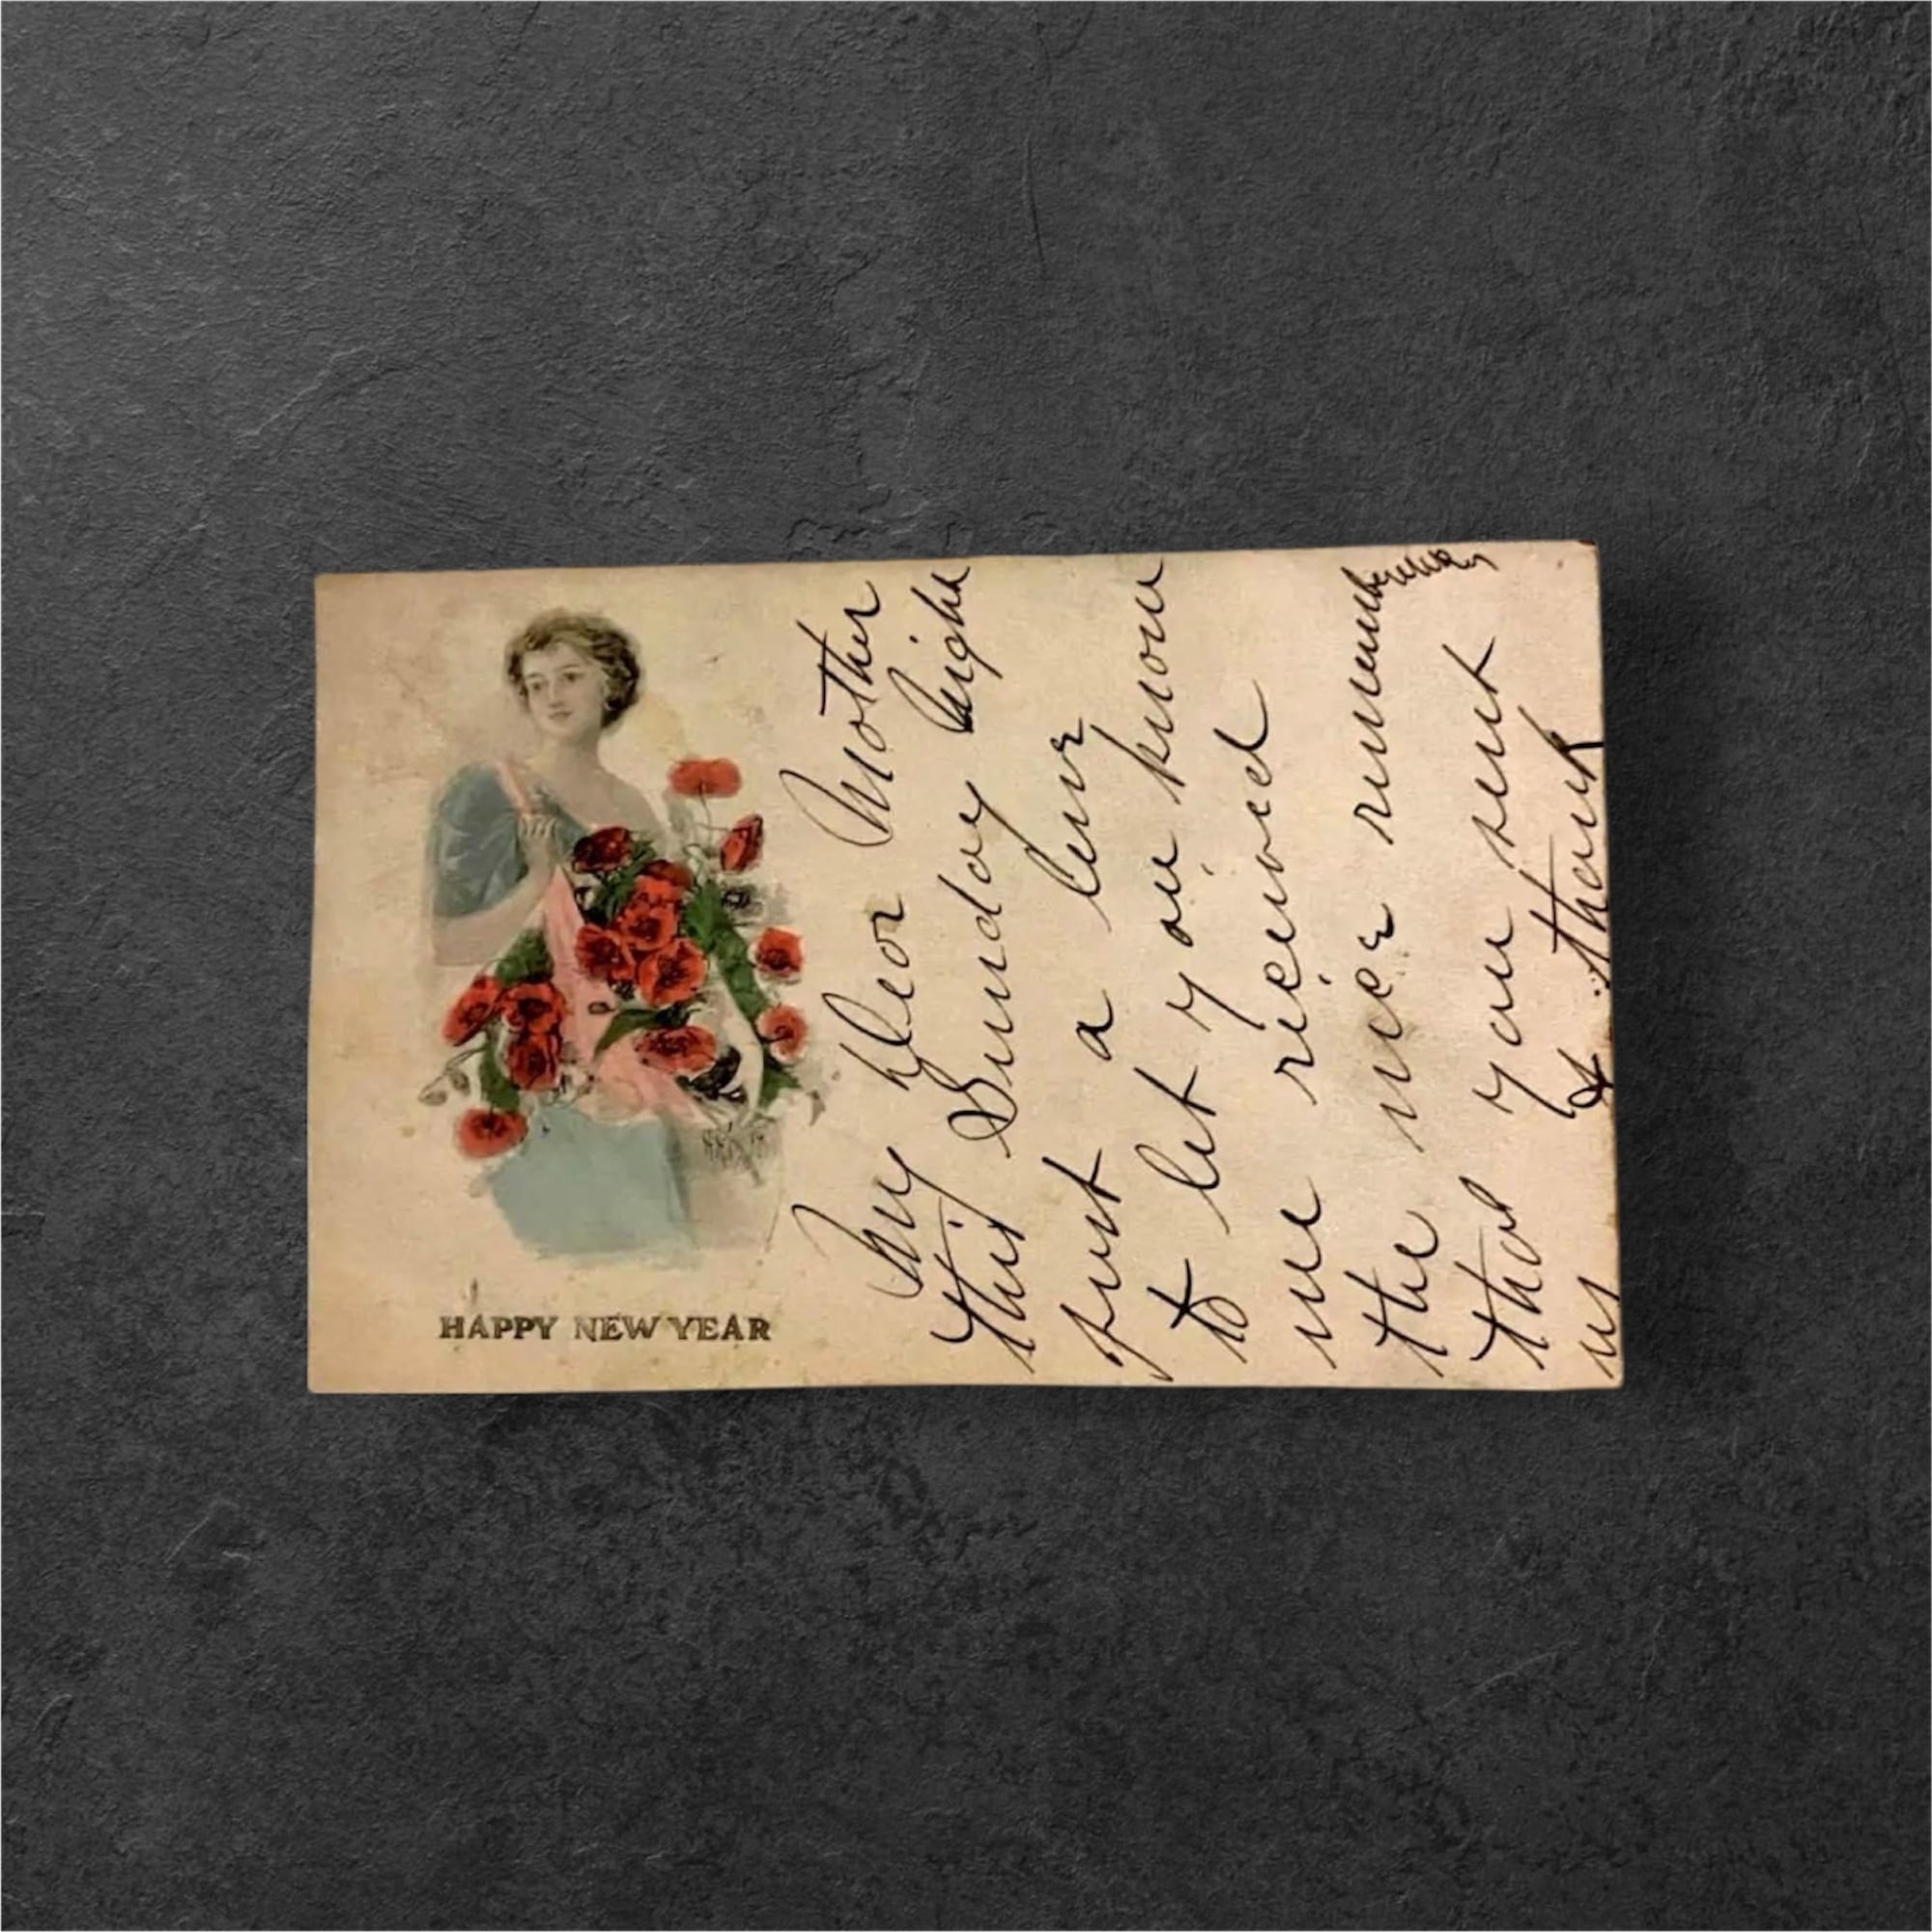 HAPPY NEW YEAR
My Dear Mother
this Sunday night
just a line
to let you know
we received
the nice remembrance
that you sent
us & thank